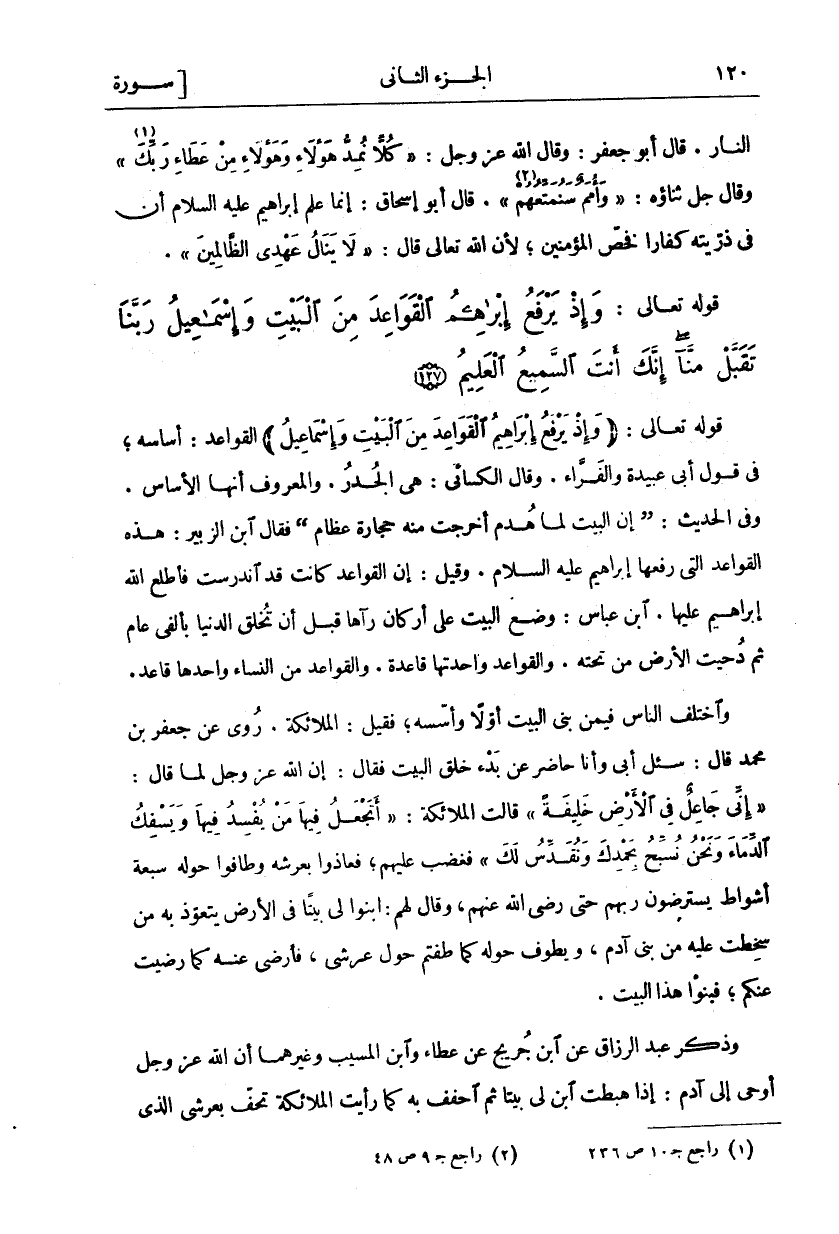 ١٢٠ الجزء الثانى [ سورة
النار . قال أبو جعفر : وقال الله عز وجل : « كُلًّا نُمِدُّ هَؤُلَاءِ وَهَؤُلَاءِ مِنْ عَطَاءِ رَبِّكَ (١) »
وقال جل ثناؤه : « وَأُمَمٌ سَنُمَتِّعُهُمْ (٢) » . قال أبو إسحاق : إنما علم إبراهيم عليه السلام أن
فى ذرّيته كفارا فخصّ المؤمنين ؛ لأن الله تعالى قال : « لَا يَنَالُ عَهْدِى الظَّالِمِينَ » .
قوله تعالى : وَإِذْ يَرْفَعُ إِبْرَٰهِـۧمُ ٱلْقَوَاعِدَ مِنَ ٱلْبَيْتِ وَإِسْمَـٰعِيلُ رَبَّنَا
تَقَبَّلْ مِنَّآ ۖ إِنَّكَ أَنتَ ٱلسَّمِيعُ ٱلْعَلِيمُ ١٢٧
قوله تعالى : ﴿ وَإِذْ يَرْفَعُ إِبْرَاهِيمُ ٱلْقَوَاعِدَ مِنَ ٱلْبَيْتِ وَإِسْمَاعِيلُ ﴾ القواعد : أساسه ؛
فى قول أبى عبيدة والفَرَّاء . وقال الكسائى : هى الجُدُرُ . والمعروف أنها الأساس .
وفى الحديث : ” إن البيت لما هُدم أخرجت منه حجارة عظام “ فقال ٱبن الزبير : هذه
القواعد التى رفعها إبراهيم عليه السلام . وقيل : إن القواعد كانت قد ٱندرست فأطلع الله
إبراهيم عليها . ٱبن عباس : وضع البيت على أركان رآها قبل أن تُخلق الدنيا بألفى عام
ثم دُحيت الأرض من تحته . والقواعد واحدتها قاعدة . والقواعد من النساء واحدها قاعد .
وٱختلف الناس فيمن بنى البيت أوّلًا وأسّسه ؛ فقيل : الملائكة . رُوى عن جعفر بن
محمد قال : سئل أبى وأنا حاضر عن بَدْء خلق البيت فقال : إن الله عز وجل لما قال :
« إِنِّى جَاعِلٌ فِى ٱلْأَرْضِ خَلِيفَةً » قالت الملائكة : « أَتَجْعَلُ فِيهَا مَنْ يُفْسِدُ فِيهَا وَيَسْفِكُ
ٱلدِّمَاءَ وَنَحْنُ نُسَبِّحُ بِحَمْدِكَ وَنُقَدِّسُ لَكَ » فغضب عليهم ؛ فعاذوا بعرشه وطافوا حوله سبعة
أشواط يسترضون ربهم حتى رضى الله عنهم ، وقال لهم : ابنوا لى بيتًا فى الأرض يتعوّذ به من
سخِطت عليه من بنى آدم ، ويطوف حوله كما طفتم حول عرشى ، فأرضى عنه كما رضيت
عنكم ؛ فبنوْا هذا البيت .
وذكر عبد الرزاق عن ٱبن جُريج عن عطاء وٱبن المسيب وغيرهما أن الله عز وجل
أوحى إلى آدم : إذا هبطت ٱبن لى بيتا ثم ٱحفف به كما رأيت الملائكة تحفّ بعرشى الذى
(١) راجع جـ ١٠ ص ٢٣٦ (٢) راجع جـ ٩ ص ٤٨